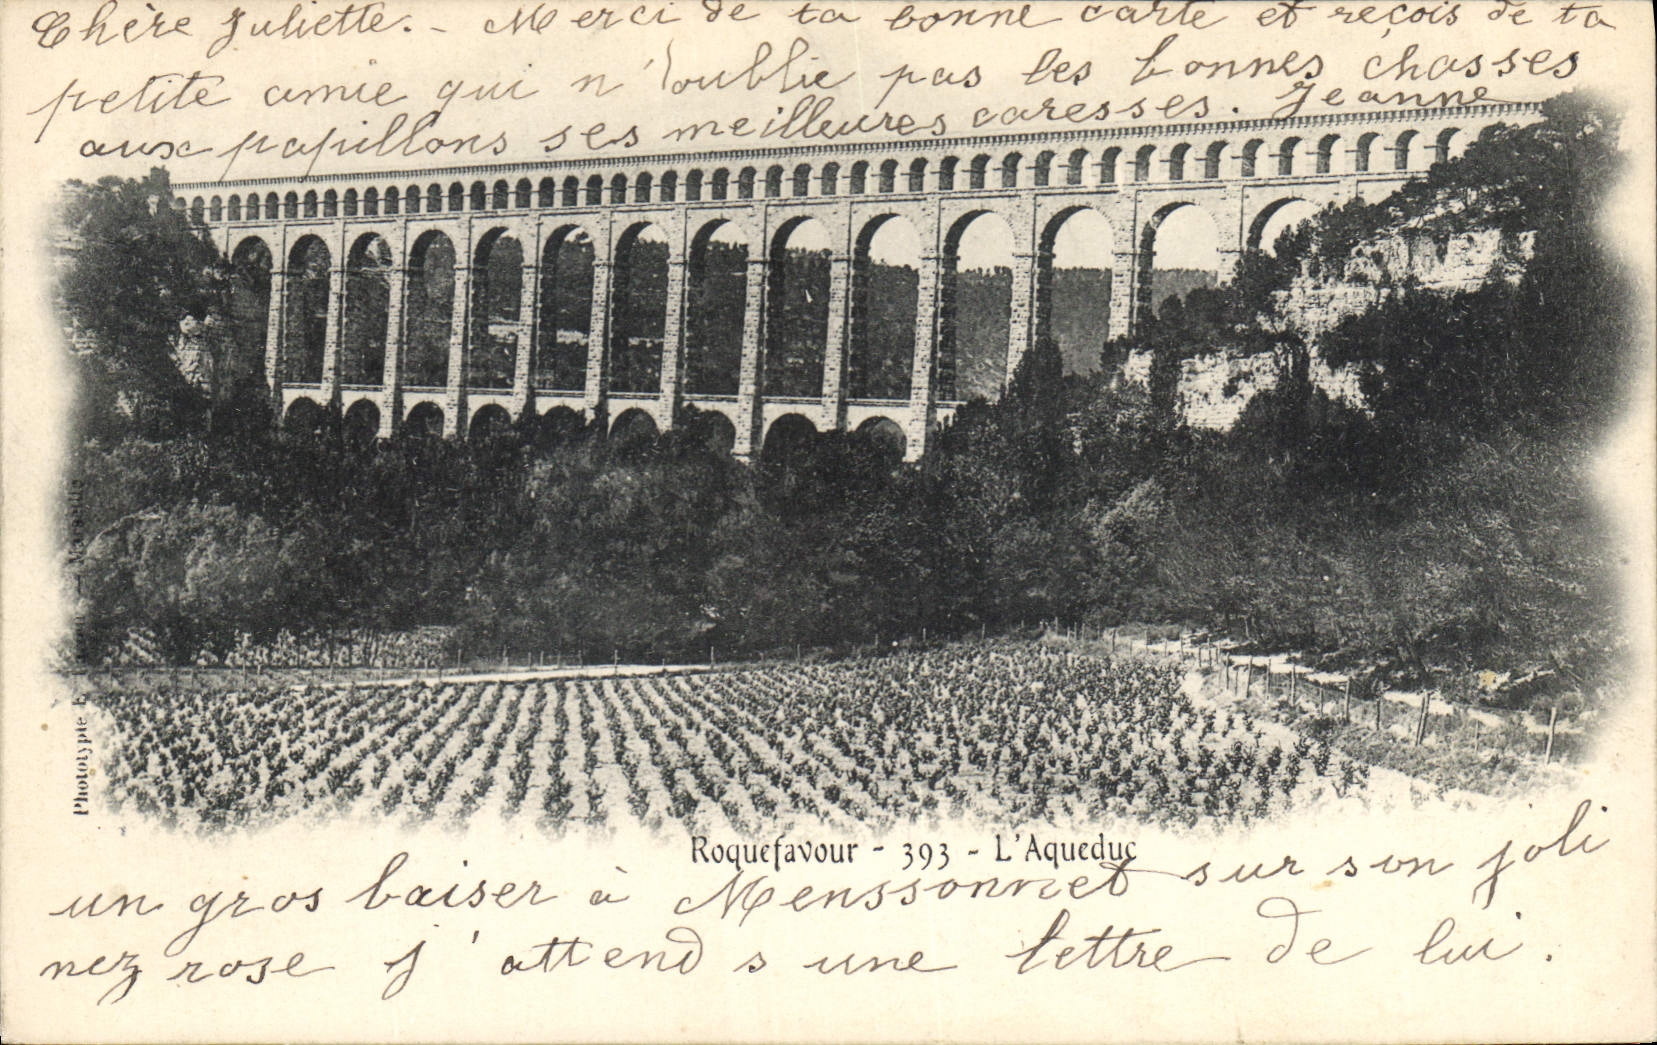 Chère Juliette. - Merci de ta bonne carte et reçois de ta
petite amie qui n'oublie pas les bonnes chasses
aux papillons ses meilleures caresses. Jeanne
Phototypie
Roquefavour - 393 - L'Aqueduc
un gros baiser à Menssonnet sur son joli
nez rose j'attends une lettre de lui.